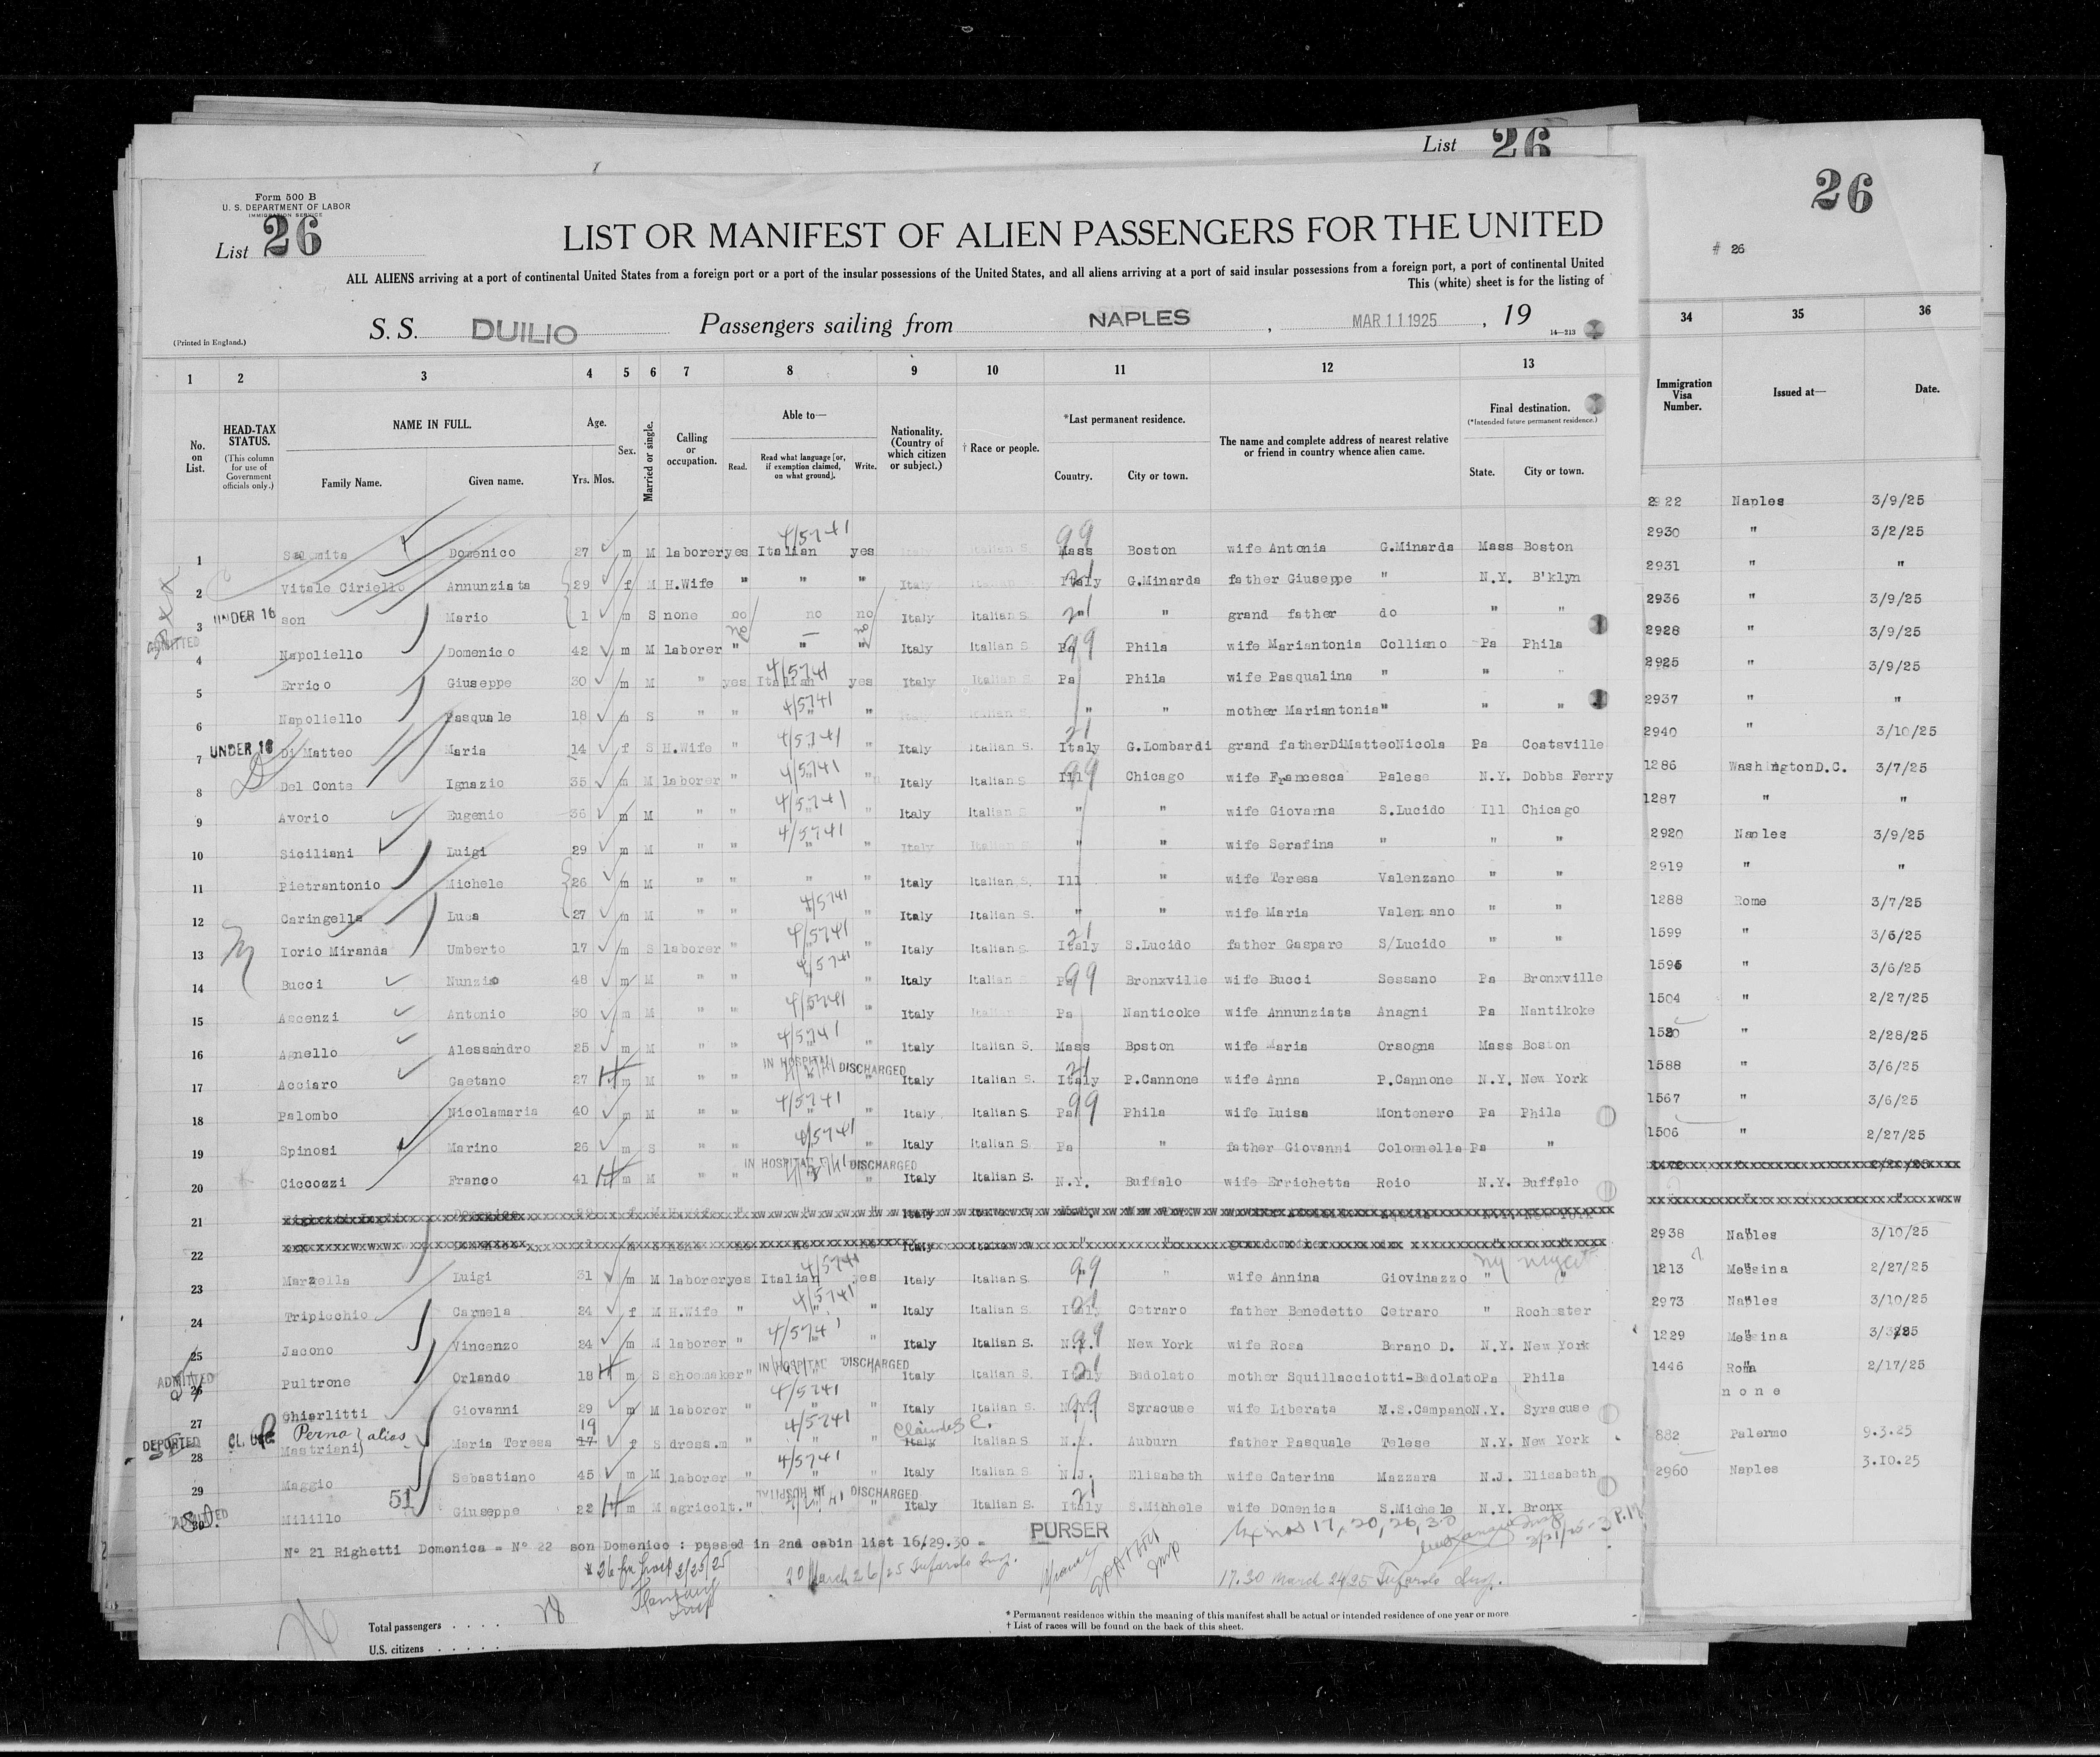 List 26
26
# 26
Form 500 B
U. S. DEPARTMENT OF LABOR
IMMIGRATION SERVICE
List 26
LIST OR MANIFEST OF ALIEN PASSENGERS FOR THE UNITED
ALL ALIENS arriving at a port of continental United States from a foreign port or a port of the insular possessions of the United States, and all aliens arriving at a port of said insular possessions from a foreign port, a port of continental United
This (white) sheet is for the listing of
S. S. DUILIO Passengers sailing from NAPLES , MAR 11 1925 , 19
(Printed in England.)
14—213
1 2 3 4 5 6 7 8 9 10 11 12 13
34 35 36
No. on List.
HEAD-TAX STATUS.
(This column for use of Government officials only.)
NAME IN FULL.
Family Name. Given name.
Age.
Yrs. Mos.
Sex.
Married or single.
Calling or occupation.
Able to—
Read. Read what language [or, if exemption claimed, on what ground]. Write.
Nationality. (Country of which citizen or subject.)
† Race or people.
*Last permanent residence.
Country. City or town.
The name and complete address of nearest relative or friend in country whence alien came.
Final destination.
(*Intended future permanent residence.)
State. City or town.
Immigration Visa Number.
Issued at—
Date.
1 Domenico 27 m M laborer yes Italian 4/5741 yes Mass 99 Boston wife Antonia G.Minarda Mass Boston
2 Vitale Ciriello Annunziata 29 f M H.Wife " " " Italy 21 G.Minarda father Giuseppe " N.Y. B'klyn
3 UNDER 16 son Mario 1 m S none no no no Italy Italian S. 21 " grand father do " "
ADMITTED
4 Napoliello Domenico 42 m M laborer " no " " no Italy Italian S Pa 99 Phila wife Mariantonia Colliano Pa Phila
5 Errico Giuseppe 30 m M " yes Italian 4/5741 yes Italy Italian S. Pa Phila wife Pasqualina " " "
6 Napoliello Pasquale 18 m S " " 4/5741 " " " mother Mariantonia" " "
7 UNDER 16 Di Matteo Maria 14 f S H.Wife " 4/5741 " Italy Italian S. Italy 21 G.Lombardi grand fatherDiMatteoNicola Pa Coatsville
8 Del Conte Ignazio 35 m M laborer " 4/5741 " Italy Italian S Ill 99 Chicago wife Francesca Palese N.Y. Dobbs Ferry
9 Avorio Eugenio 36 m M " " 4/5741 " Italy Italian S " " wife Giovanna S.Lucido Ill Chicago
10 Siciliani Luigi 29 m M " " 4/5741 " Italy Italian S. " " wife Serafina " " "
11 Pietrantonio Michele 26 m M " " " " Italy Italian S. Ill " wife Teresa Valenzano " "
12 Caringella Luca 27 m M " " 4/5741 " Italy Italian S. " " wife Maria Valenzano " "
13 Iorio Miranda Umberto 17 m S laborer " 4/5741 " Italy Italian S. Italy 21 S.Lucido father Gaspare S/Lucido " "
14 Bucci Nunzio 48 m M " " 4/5741 " Italy Italian S Pa 99 Bronxville wife Bucci Sessano Pa Bronxville
15 Ascenzi Antonio 30 m M " " 4/5741 " Italy Italian S. Pa Nanticoke wife Annunziata Anagni Pa Nantikoke
16 Agnello Alessandro 25 m M " " 4/5741 " Italy Italian S. Mass Boston wife Maria Orsogna Mass Boston
17 Acciaro Gaetano 27 H m M " " IN HOSPITAL DISCHARGED " Italy Italian S. Italy 21 P.Cannone wife Anna P.Cannone N.Y. New York
18 Palombo Nicolamaria 40 m M " " 4/5741 " Italy Italian S. Pa 99 Phila wife Luisa Montenero Pa Phila
19 Spinosi Marino 26 m S " " 4/5741 " Italy Italian S. Pa " father Giovanni Colonnella Pa "
20 Ciccozzi Franco 41 H m M " " IN HOSPITAL DISCHARGED " Italy Italian S. N.Y. Buffalo wife Errichetta Roio N.Y. Buffalo
21 Italy
22 Italy
23 Marzella Luigi 31 m M laborer yes Italian 4/5741 yes Italy Italian S. " 99 " wife Annina Giovinazzo " "
24 Tripicchio Carmela 24 f M H.Wife " 4/5741 " Italy Italian S. Italy 21 Cetraro father Benedetto Cetraro " Rochester
25 Jacono Vincenzo 24 m M laborer " 4/5741 " Italy Italian S. N.Y. 99 New York wife Rosa Barano D. N.Y. New York
26 ADMITTED Pultrone Orlando 18 H m S shoemaker " IN HOSPITAL DISCHARGED Italy Italian S. Italy 21 Badolato mother Squillacciotti-Badolato Pa Phila
27 Ghiarlitti Giovanni 29 m M laborer " 4/5741 " Italy Italian S. N.Y. 99 Syracuse wife Liberata M.S.Campano N.Y. Syracuse
28 DEPORTED Perna alias Mastriani) Maria Teresa 19 17 f S dress.m " 4/5741 " Italy Italian S N.Y. Auburn father Pasquale Telese N.Y. New York
29 Maggio Sebastiano 45 m M laborer " 4/5741 " Italy Italian S N.J. Elisabeth wife Caterina Mazzara N.J. Elisabeth
30 ADMITTED Milillo 51 Giuseppe 22 H m M agricolt. " IN HOSPITAL DISCHARGED " Italy Italian S. Italy 21 S.Michele wife Domenica S.Michele N.Y. Bronx
2922 Naples 3/9/25
2930 " 3/2/25
2931 " "
2936 " 3/9/25
2928 " 3/9/25
2925 " 3/9/25
2937 " "
2940 " 3/10/25
1286 Washington D.C. 3/7/25
1287 " "
2920 Naples 3/9/25
2919 " "
1288 Rome 3/7/25
1599 " 3/6/25
1595 " 3/6/25
1504 " 2/27/25
1520 " 2/28/25
1588 " 3/6/25
1567 " 3/6/25
1506 " 2/27/25
2938 Naples 3/10/25
1213 Messina 2/27/25
2973 Naples 3/10/25
1229 Messina
1446 Roma 2/17/25
none
882 Palermo 9.3.25
2960 Naples 3.10.25
Nº 21 Righetti Domenica = Nº 22 son Domenico : passed in 2nd cabin list 16/29.30 =
PURSER
nos 17, 20, 26, 30
20 March 26/25 Tufarolo Insp.
17.30 March 24/25 Tufarolo Insp.
Total passengers . . . . 28
U.S. citizens . . . . .
* Permanent residence within the meaning of this manifest shall be actual or intended residence of one year or more
† List of races will be found on the back of this sheet.